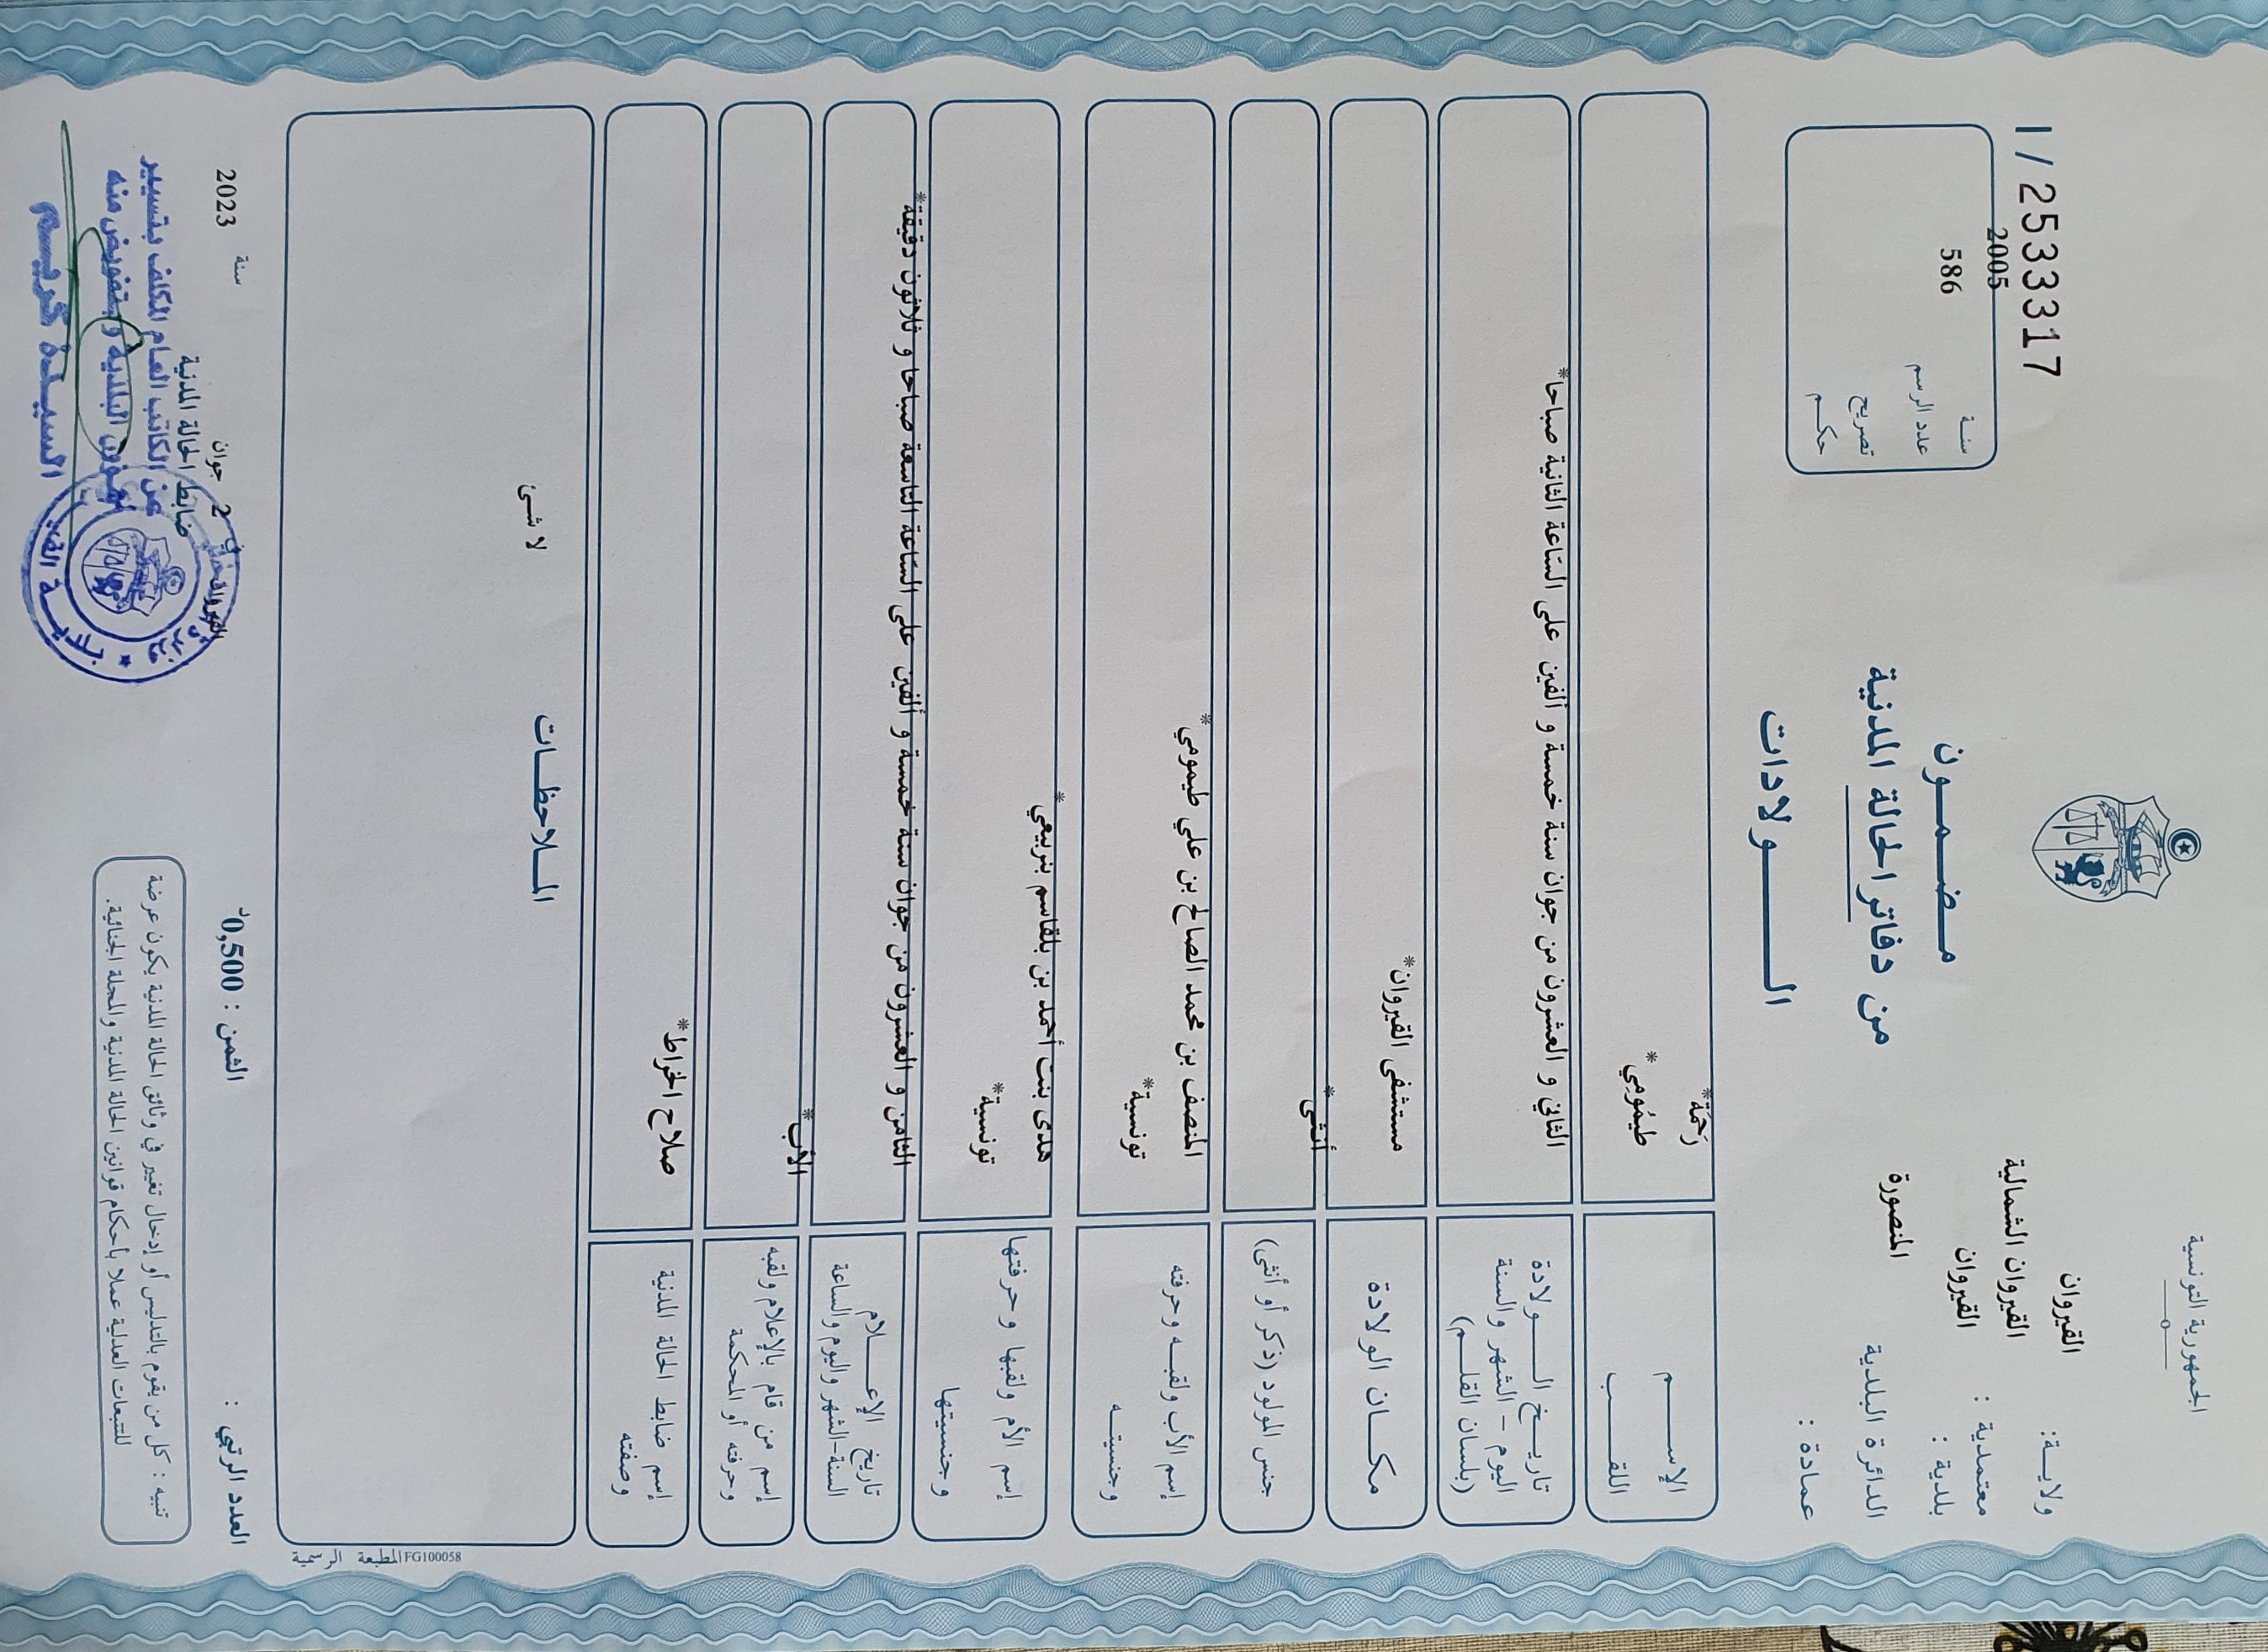 الجمهورية التونسية
ولاية: القيروان
معتمدية : القيروان الشمالية
بلدية : القيروان
الدائرة البلدية المنصورة
عمادة :
مضمون
من دفاتر الحالة المدنية
الولادات
I/2533317
سنة 2005
عدد الرسم 586
تصريح
حكم
الإسم رَحمَة*
اللقب طيمُومِي*
تاريخ الولادة
اليوم - الشهر والسنة
(بلسان القلم)
الثاني و العشرون من جوان سنة خمسة و ألفين على الساعة الثانية صباحا*
مكان الولادة مستشفى القيروان*
جنس المولود (ذكر أو أنثى) أنثى*
إسم الأب ولقبه وحرفته
وجنسيته
المنصف بن محمد الصالح بن علي طيمومي*
تونسية*
إسم الأم ولقبها وحرفتها
وجنسيتها
هدى بنت أحمد بن بلقاسم بنربيعي*
تونسية*
تاريخ الإعلام
السنة-الشهر واليوم والساعة
الثامن و العشرون من جوان سنة خمسة و ألفين على الساعة التاسعة صباحا و ثلاثون دقيقة*
إسم من قام بالإعلام ولقبه
وحرفته أو المحكمة
الأب*
إسم ضابط الحالة المدنية
وصفته
صلاح الخراط*
الملاحظات
لا شئ
المطبعة الرسمية FG100058
العدد الرتبي :
الثمن : 0,500د
2 جوان سنة 2023
ضابط الحالة المدنية
عن الكاتب العام المكلف بتسيير
شؤون البلدية و بتفويض منه
السيدة كريم
تنبيه : كل من يقوم بالتدليس أو إدخال تغيير في وثائق الحالة المدنية يكون عرضة
للتتبعات العدلية عملا بأحكام قوانين الحالة المدنية والمجلة الجنائية.